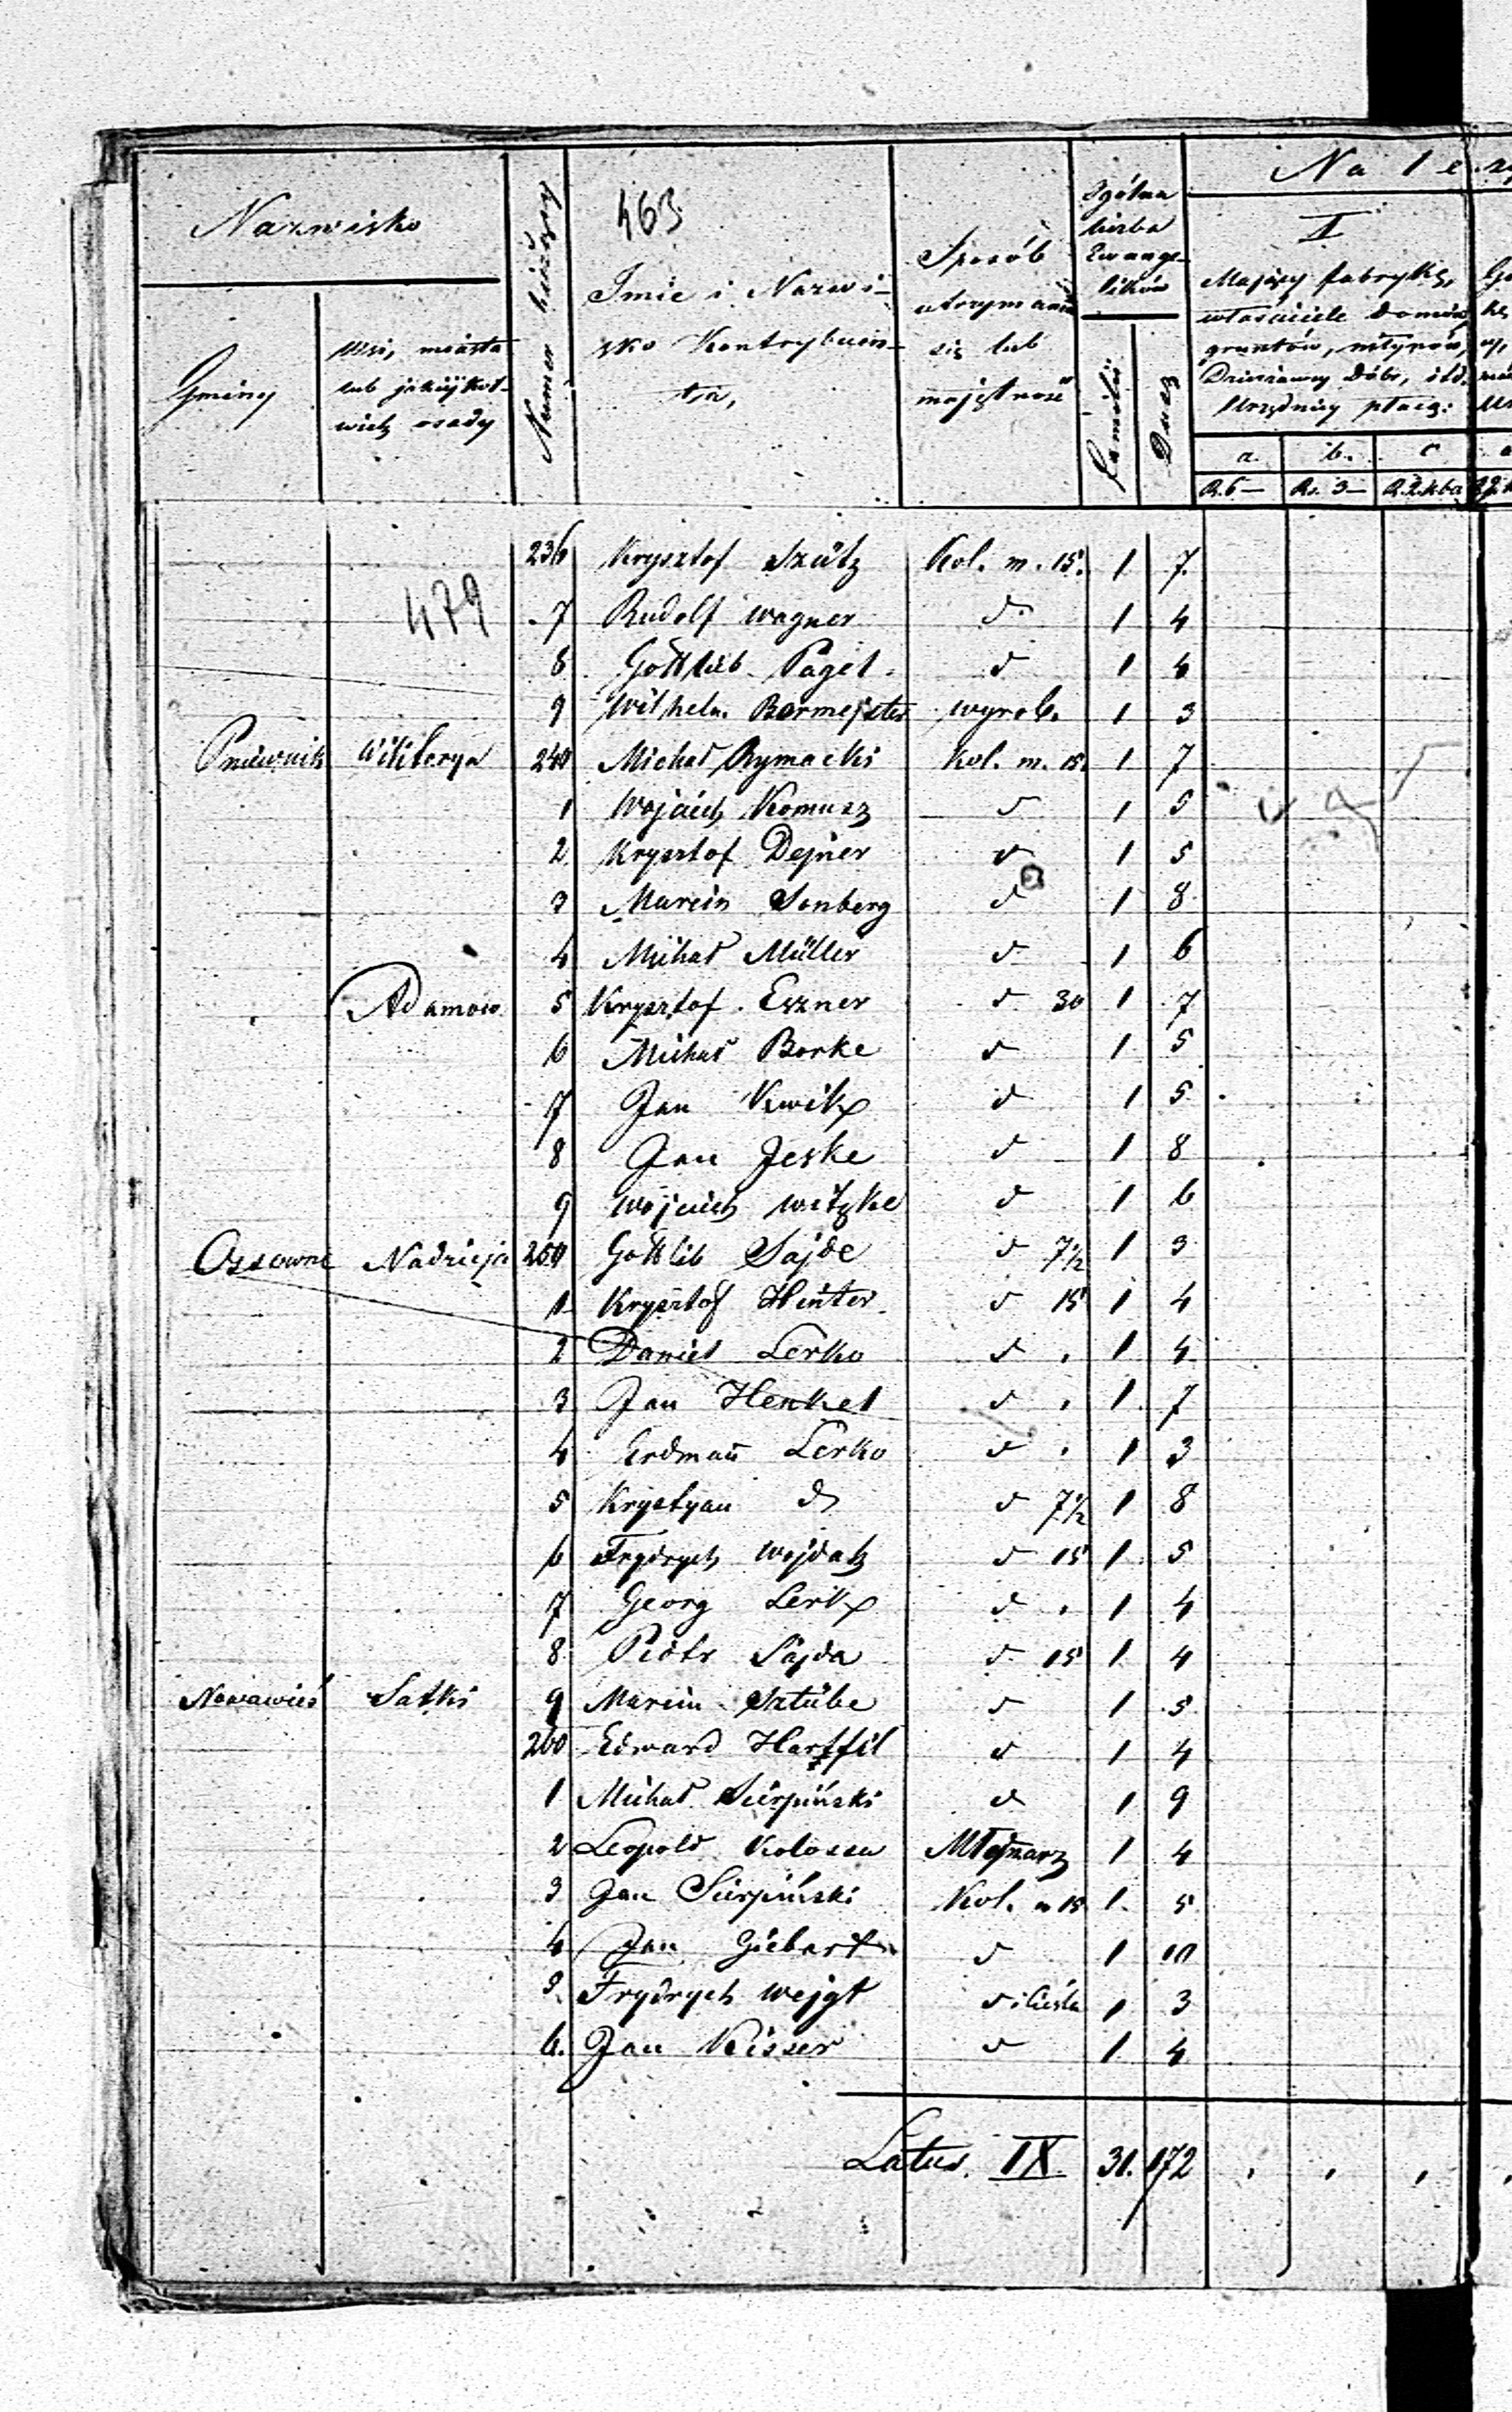 463
Nazwisko
Gminy
Wsi, miasta
lub jakiejkol-
wiek osady
Numer bieżący
Imie i Nazwi-
sko Kontrybuen-
ta,
Sposób
utrzymania
się lub
majętność
Ogólna
liczba
Ewange-
lików
Familii
Dusz
Na l e
I
Mający fabrykę,
właściciele domów,
gruntów, młynów,
Dzierżawcy dóbr, itd.
Urzędnicy płacą:
a. b. c
R. 6— Rs. 3— R.
479
236 Krysztof Szütz Kol. m. 15. 1 7.
7 Rudolf Wagner d 1 4
8 Gottlieb Pagel d 1 4
9 Wilhelm Bermejster wyrob. 1 3
Pniewnik Wiktorya 240 Michał Rymacki Kol. m. 15. 1 7
1 Wojciech Komusz d 1 5
2 Krysztof Dejner d 1 5
3 Marcin Sonberg d 1 8
4 Michał Müller d 1 6
Adamów 5 Krysztof Eszner d 30 1 7
6 Michał Borke d 1 5
7 Jan Kwik d 1 5
8 Jan Jeske d 1 8
9 Wojciech Witzke d 1 6
Ossowno Nadzieja 250 Gottlib Sajde d 7½ 1 3
1 Krysztof Hinter d 15 1 4
2 Daniel Lerko d 1 4
3 Jan Henkel d 1 7
4 Erdman Lerko d 1 3
5 Krystyan d d 7½ 1 8
6 Frydrych Wojdatz d 15 1 5
7 Georg Lerk d 1 4
8 Piotr Sajda d 15 1 4
Nowawieś Satki 9 Marcin Sztübe d 1 5
260 Edward Hartfil d 1 4
1 Michał Sierpiński d 1 9
2 Leopold Kolossa Młynarz 1 4
3 Jan Sierpiński Kol. m 15 1 5
4 Jan Giebart d 1 10
5. Frydrych Wejgt d i Cieśla 1 3
6. Jan Kisser d 1 4
Latus. IX. 31. 172